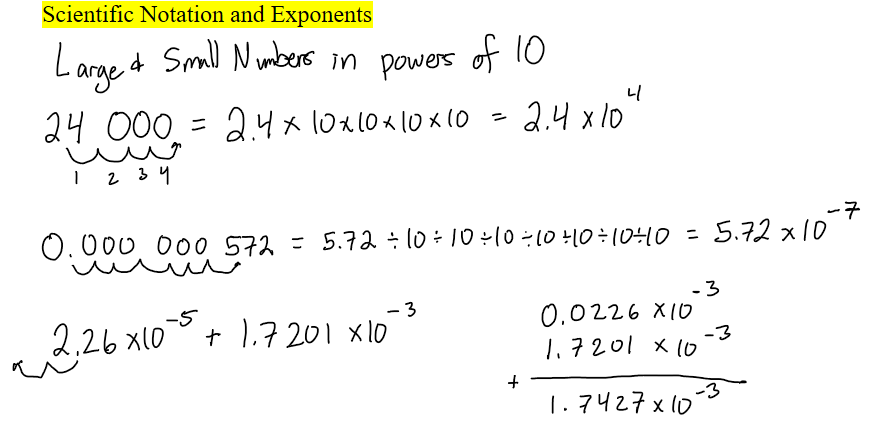 Scientific Notation and Exponents
Large & Small Numbers in powers of 10
24 000 = 2.4 × 10×10×10×10 = 2.4 ×10⁴
1 2 3 4
0.000 000 572 = 5.72 ÷10÷10÷10÷10÷10÷10÷10 = 5.72 ×10⁻⁷
2.26 ×10⁻⁵ + 1.7201 ×10⁻³
0.0226 ×10⁻³
1.7201 ×10⁻³
+
1.7427×10⁻³